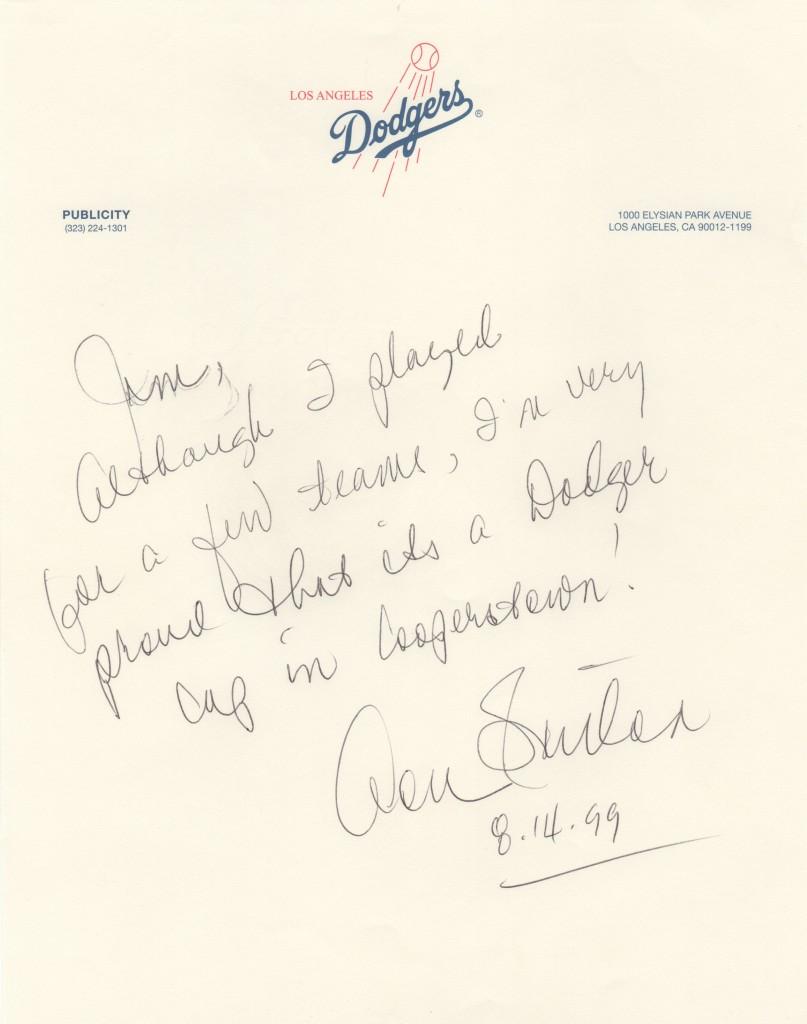 LOS ANGELES
Dodgers®
PUBLICITY
(323) 224-1301
1000 ELYSIAN PARK AVENUE
LOS ANGELES, CA 90012-1199
Jim,
Although I played
for a few teams, I'm very
proud that its a Dodger
cap in Cooperstown!
Don Sutton
8.14.99